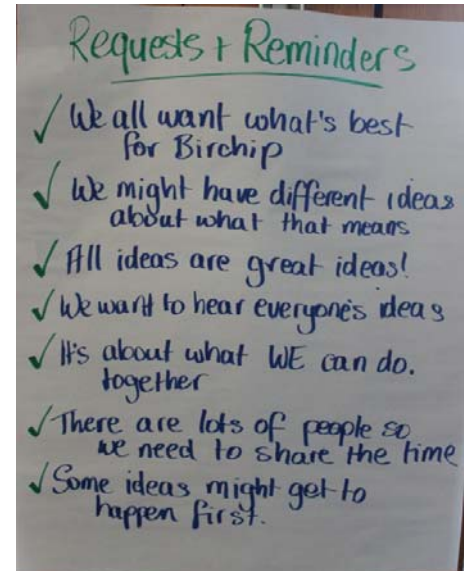 Requests + Reminders
✓ We all want what's best
for Birchip
✓ We might have different ideas
about what that means
✓ All ideas are great ideas!
✓ We want to hear everyone's ideas
✓ It's about what WE can do.
together
✓ There are lots of people so
we need to share the time
✓ Some ideas might get to
happen first.